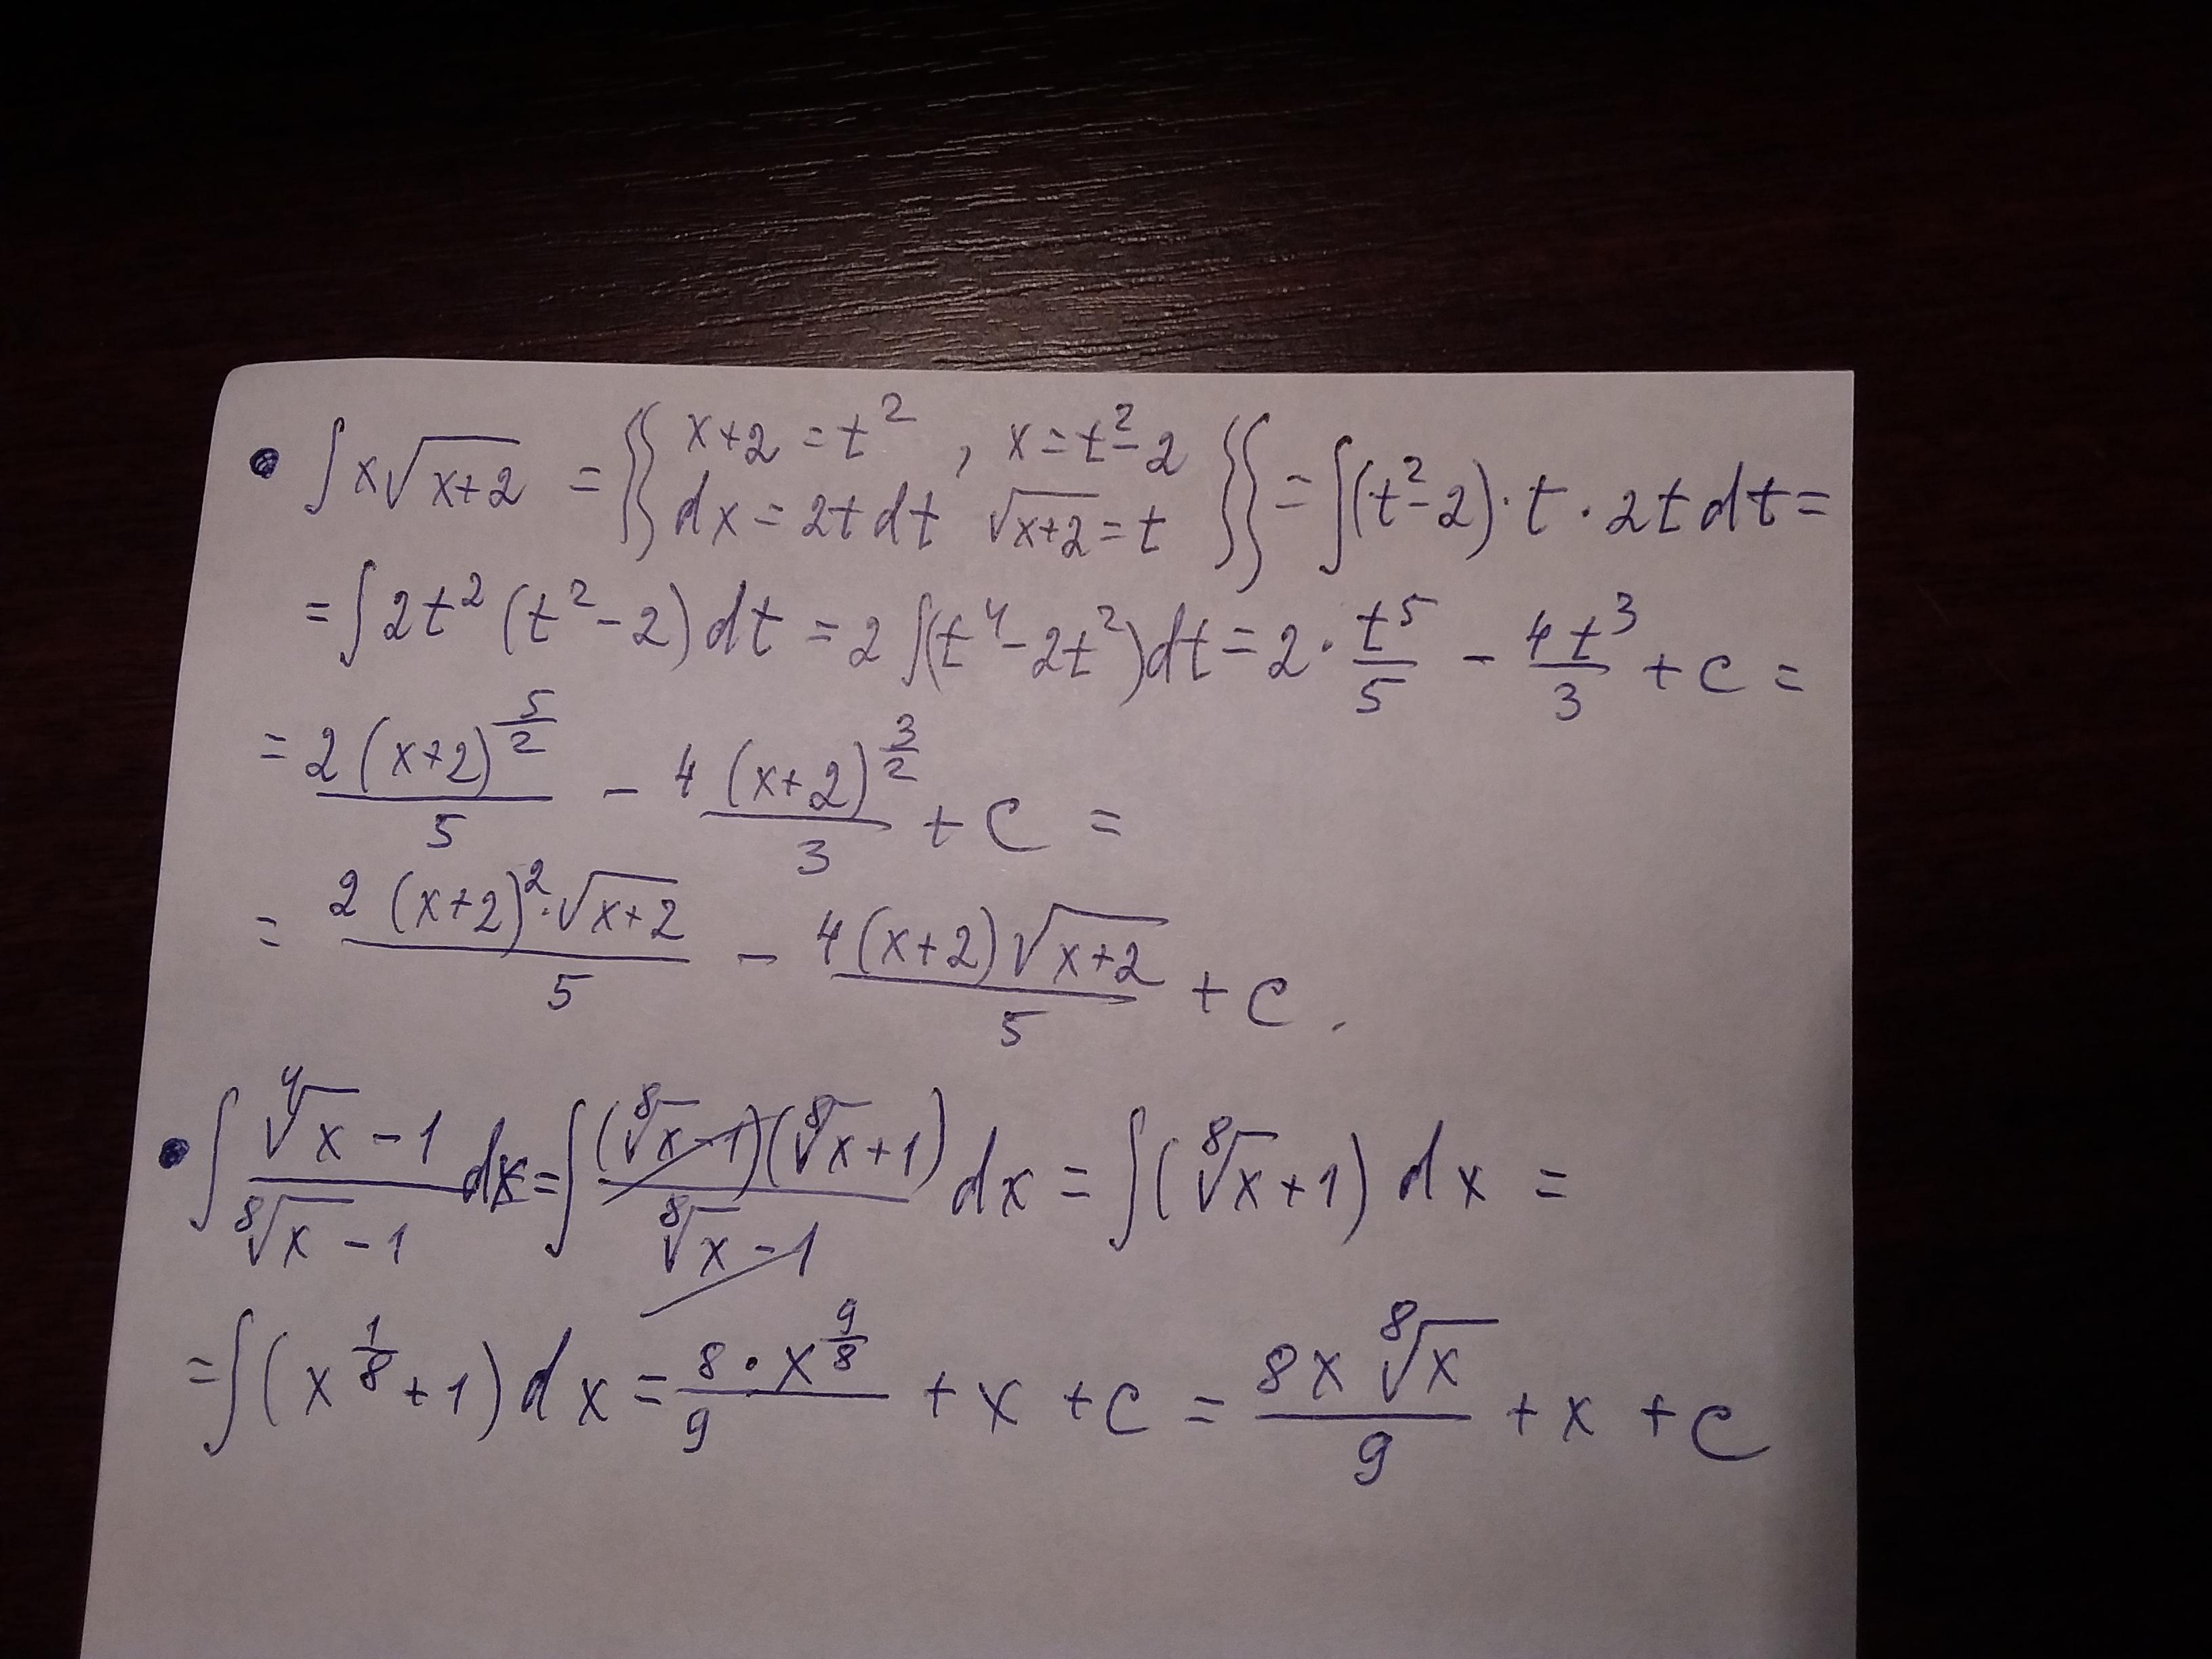 • ∫x√(x+2) = {{x+2 = t², x = t²-2
dx = 2t dt √(x+2) = t}} = ∫(t²-2)·t·2t dt =
= ∫2t²(t²-2)dt = 2∫(t⁴-2t²)dt = 2·t⁵/5 - 4t³/3 + c =
= 2(x+2)^(5/2)/5 - 4(x+2)^(3/2)/3 + C =
= 2(x+2)²·√(x+2)/5 - 4(x+2)√(x+2)/5 + C.
• ∫(⁴√x - 1)/(⁸√x - 1) dx = ∫(⁸√x - 1)(⁸√x + 1)/(⁸√x - 1) dx = ∫(⁸√x + 1) dx =
= ∫(x^(1/8) + 1) dx = 8·x^(9/8)/9 + x + c = 8x ⁸√x/9 + x + C